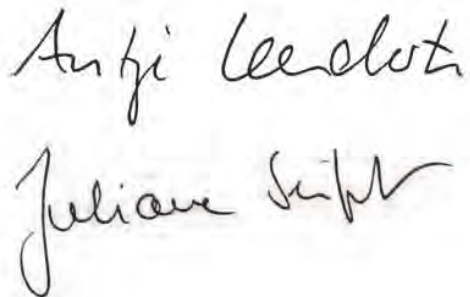 Antje Leendertz
Juliane Seifert